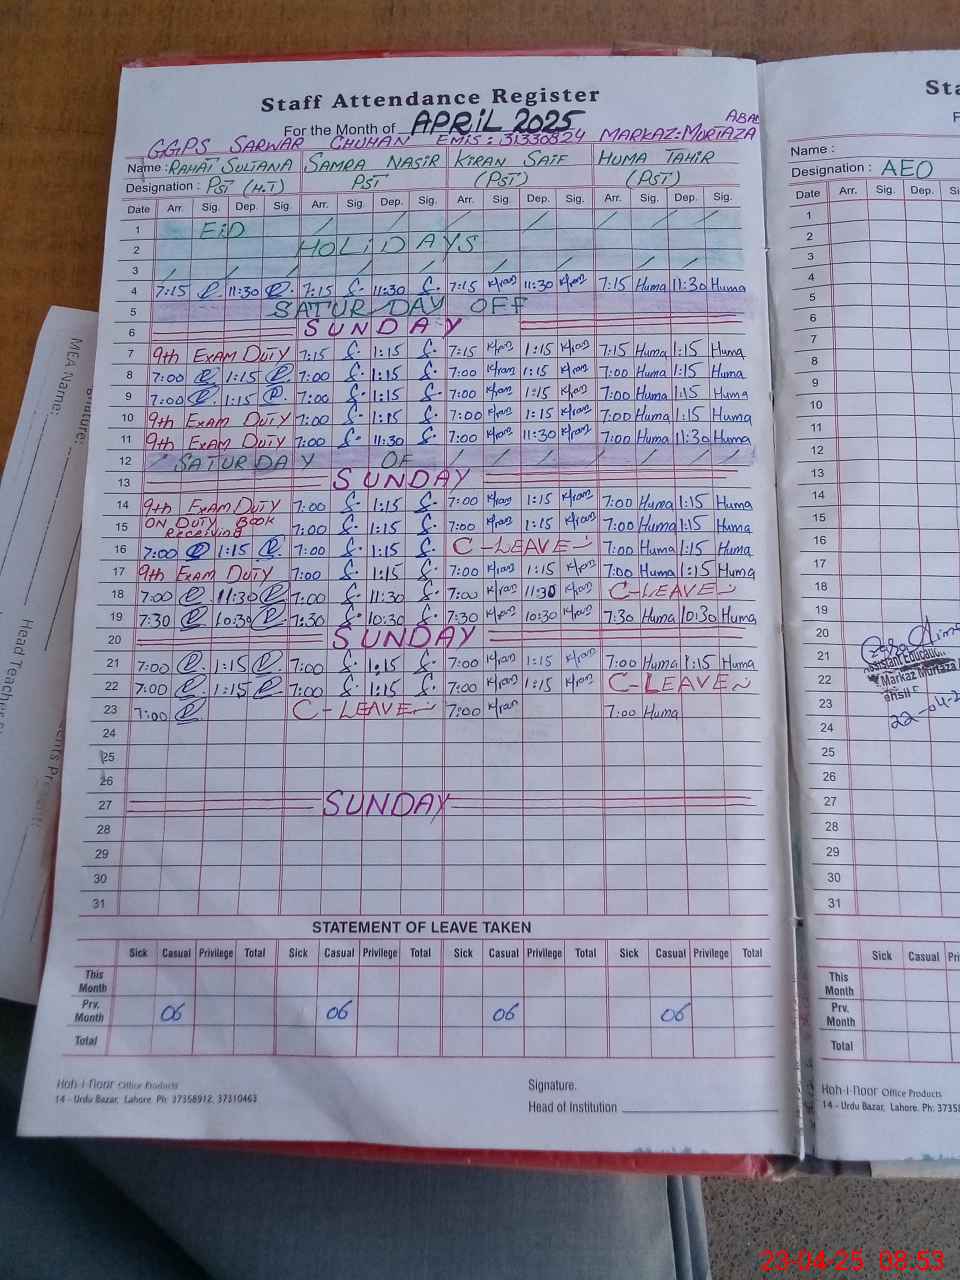 Staff Attendance Register
For the Month of APRIL 2025
GGPS SARWAR CHUHAN EMIS: 31330824 MARKAZ:MURTAZA ABAD
Name : RAHAT SULTANA SAMRA NASIR KIRAN SAIF HUMA TAHIR
Designation : PST (H.T) PST (PST) (PST)
Date Arr. Sig. Dep. Sig. Arr. Sig. Dep. Sig. Arr. Sig. Dep. Sig. Arr. Sig. Dep. Sig.
1 EiD
2 HOLiDAYS
3
4 7:15 11:30 7:15 11:30 7:15 Kiran 11:30 Kiran 7:15 Huma 11:30 Huma
5 SATURDAY OFF
6 SUNDAY
7 9th EXAM DUTY 7:15 1:15 7:15 Kiran 1:15 Kiran 7:15 Huma 1:15 Huma
8 7:00 1:15 7:00 1:15 7:00 Kiran 1:15 Kiran 7:00 Huma 1:15 Huma
9 7:00 1:15 7:00 1:15 7:00 Kiran 1:15 Kiran 7:00 Huma 1:15 Huma
10 9th EXAM DUTY 7:00 1:15 7:00 Kiran 1:15 Kiran 7:00 Huma 1:15 Huma
11 9th EXAM DUTY 7:00 11:30 7:00 Kiran 11:30 Kiran 7:00 Huma 11:30 Huma
12 SATURDAY OF
13 SUNDAY
14 9th EXAM DUTY 7:00 1:15 7:00 Kiran 1:15 Kiran 7:00 Huma 1:15 Huma
15 ON DUTY BOOK RECEIVING 7:00 1:15 7:00 Kiran 1:15 Kiran 7:00 Huma 1:15 Huma
16 7:00 1:15 7:00 1:15 C-LEAVE 7:00 Huma 1:15 Huma
17 9th EXAM DUTY 7:00 1:15 7:00 Kiran 1:15 Kiran 7:00 Huma 1:15 Huma
18 7:00 11:30 7:00 11:30 7:00 Kiran 11:30 Kiran C-LEAVE
19 7:30 10:30 7:30 10:30 7:30 Kiran 10:30 Kiran 7:30 Huma 10:30 Huma
20 SUNDAY
21 7:00 1:15 7:00 1:15 7:00 Kiran 1:15 Kiran 7:00 Huma 1:15 Huma
22 7:00 1:15 7:00 1:15 7:00 Kiran 1:15 Kiran C-LEAVE
23 7:00 C-LEAVE 7:00 Kiran 7:00 Huma
24
25
26
27 SUNDAY
28
29
30
31
STATEMENT OF LEAVE TAKEN
Sick Casual Privilege Total Sick Casual Privilege Total Sick Casual Privilege Total Sick Casual Privilege Total
This Month
Prv. Month 06 06 06 06
Total
Koh-i-noor Office Products
14 - Urdu Bazar, Lahore. Ph: 37358912, 37310463
Signature.
Head of Institution
Name :
Designation : AEO
Arr. Sig. Dep. Sig.
1
2
3
4
5
6
7
8
9
10
11
12
13
14
15
16
17
18
19
20
21
22
23
24
25
26
27
28
29
30
31
Markaz Murtaza
22-04-2
Sick Casual
This Month
Prv. Month
Total
Koh-i-noor Office Products
14 - Urdu Bazar, Lahore. Ph: 3735
MEA Name:
Head Teacher
23-04-25 08:53